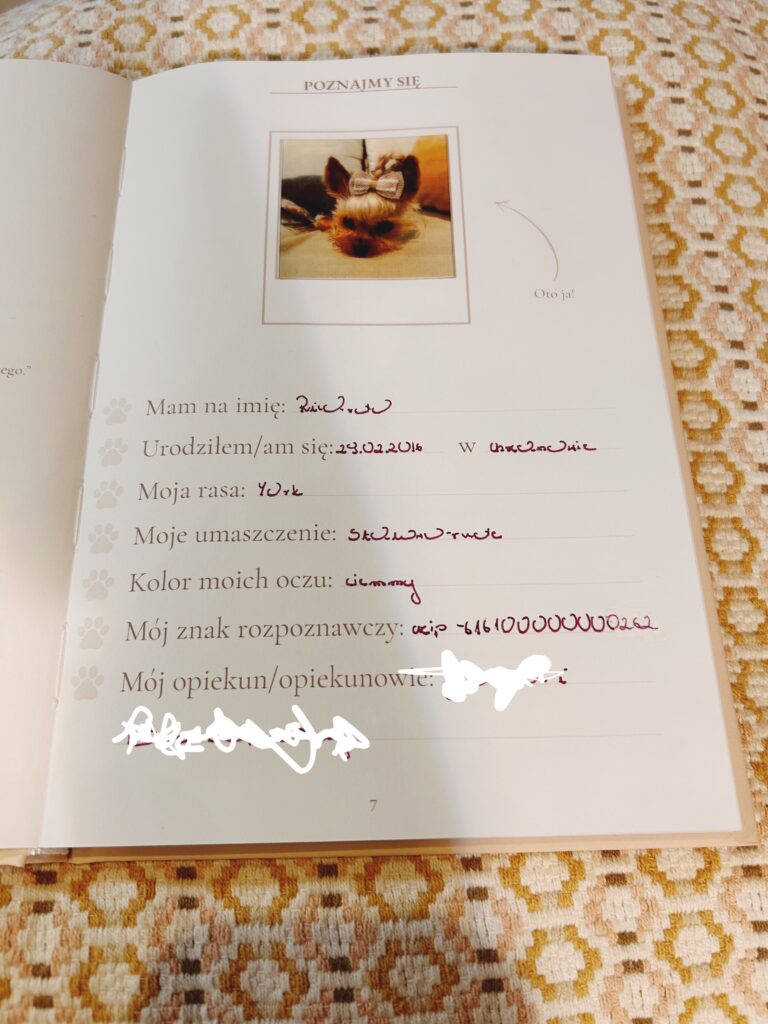 ego."
POZNAJMY SIĘ
Oto ja!
Mam na imię:
Urodziłem/am się: 29.02.2016 w
Moja rasa: York
Moje umaszczenie: Stalowo-rude
Kolor moich oczu: ciemny
Mój znak rozpoznawczy:
Mój opiekun/opiekunowie:
7